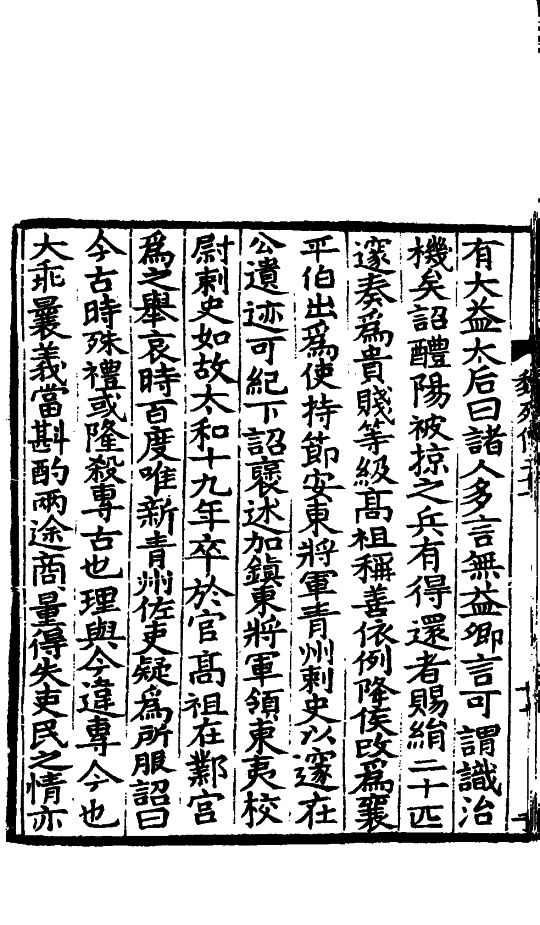 有大益太后曰諸人多言無益卿言可謂識治
機矣詔醴陽被掠之兵有得還者賜絹二十匹
邃奏爲貴賤等級高祖稱善依例降侯改爲襄
平伯出爲使持節安東將軍青州刺史以邃在
公遺迹可紀下詔襃述加鎮東將軍領東夷校
尉刺史如故太和十九年卒於官高祖在鄴宮
爲之舉哀時百度唯新青州佐吏疑爲所服詔曰
今古時殊禮或隆殺專古也理與今違專今也
大乖曩義當斟酌兩途商量得失吏民之情亦